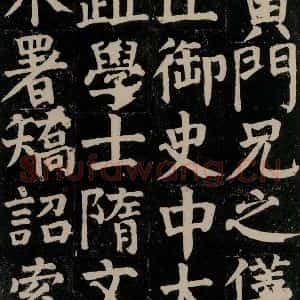 黃門兄之儀
正御史中大
趾學士隋文
不署矯詔索
Shufawang.Cn